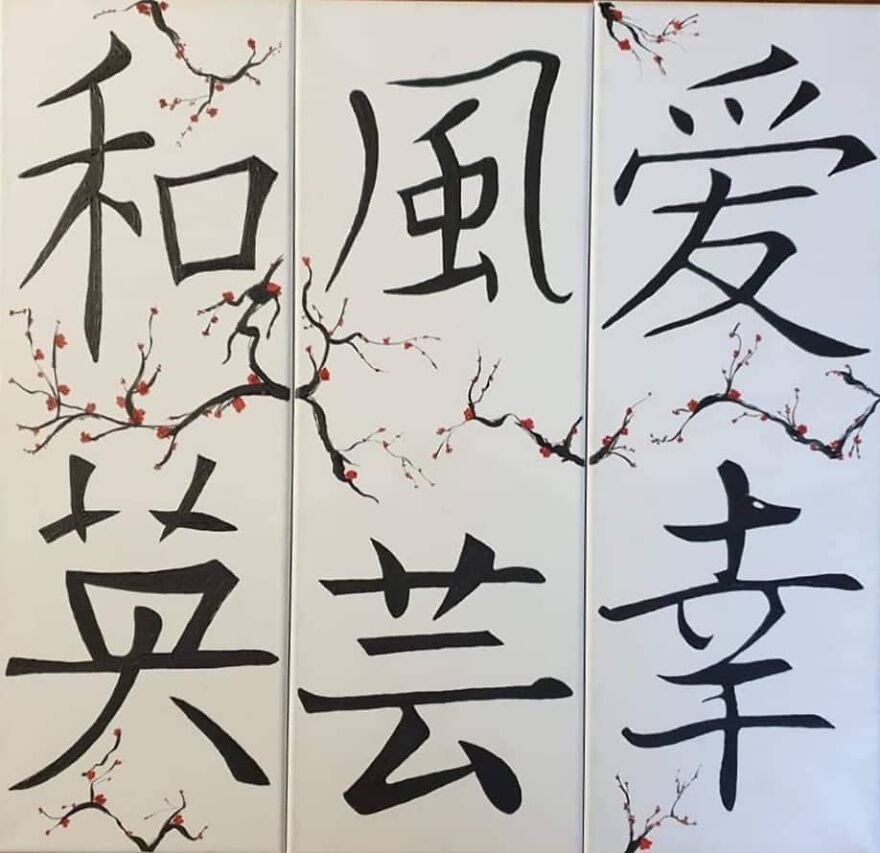 和 風 爱
英 芸 幸